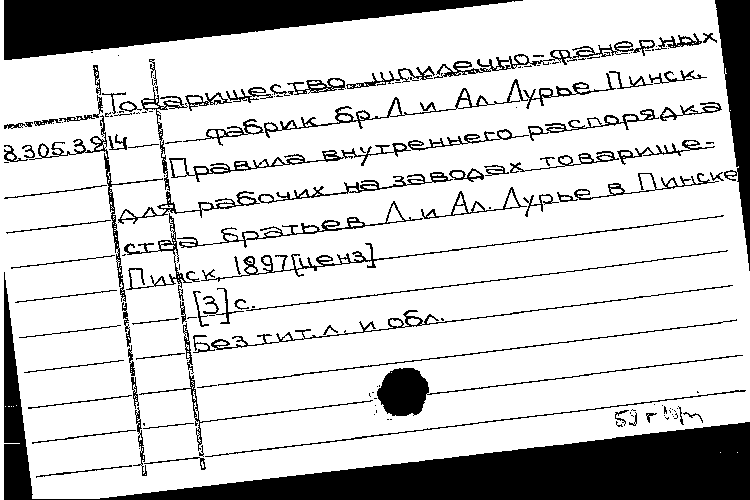 Товарищество шпилечно-фанерных
фабрик бр. Л. и Ал. Лурье. Пинск.
8.305.3.914
Правила внутреннего распорядка
для рабочих на заводах товарище-
ства братьев Л. и Ал. Лурье в Пинске
Пинск, 1897[ценз]
[3]с.
Без тит.л. и обл.
59 г